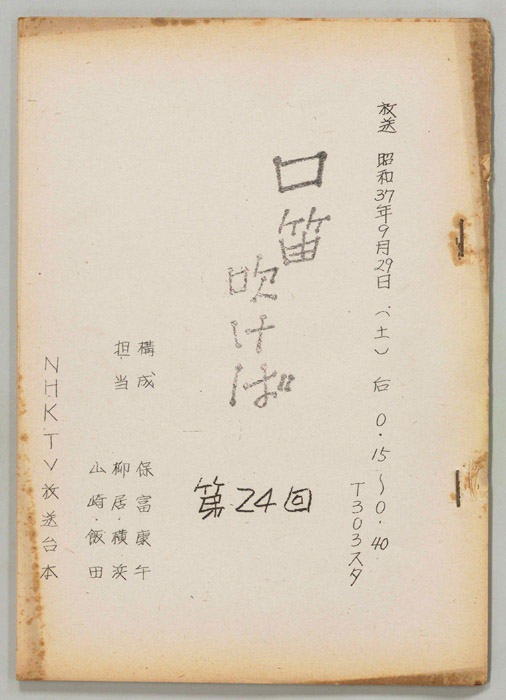 放送 昭和37年9月29日(土) 后 0.15～0.40
T303スタ
口笛
吹けば
第24回
構成 保富康午
担当 柳居・横浜
山崎・飯田
NHKTV放送台本